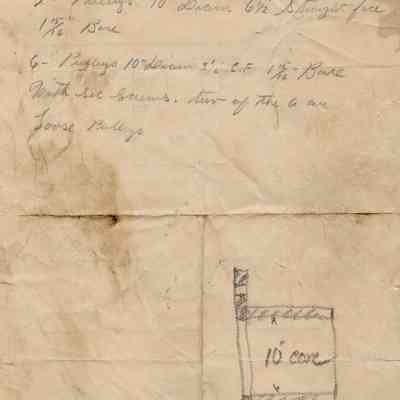 Pulleys 10" Diam 6½ Straight face
1 15/16" Bore
6- Pulleys 10" Diam 3½ C.F. 1 15/16" Bore
With Set Screws. two of the 6 are
Loose Pulleys
10" core